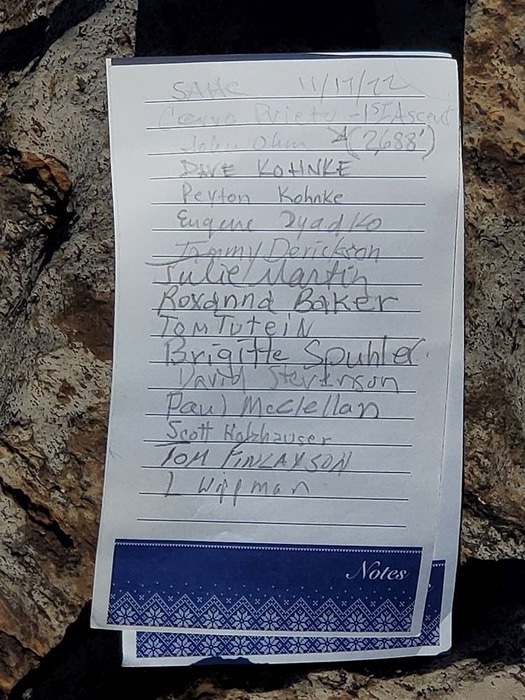 SAHC 11/17/22
Cerro Prieto - 1st Ascent
John Ohm (2,688')
DAVE KOHNKE
Peyton Kohnke
Eugene Dyadko
Tommy Derickson
Julie Martin
Roxanna Baker
Tom Tutein
Brigitte Spuhler
David Stevenson
Paul McClellan
Scott Holzhauser
TOM FINLAYSON
L Wippman
Notes